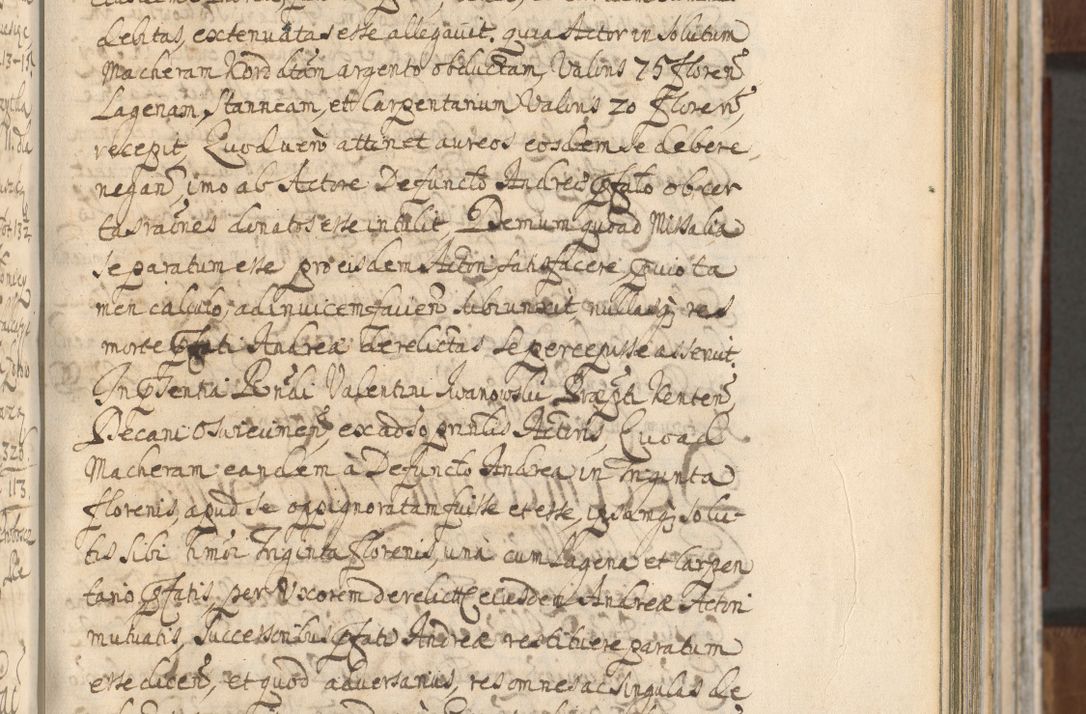 debitas, extenuatas esse allegavit. quia Actor in solutum
Macheram Kordatãm argento obductam, Valoris 75 floreñ
Lagenam Stanneam, ett Cargentarium Valoris 20 floreñ,
recepit, Quod verò attinet aureos eosdem se debere
negañ, imo ab Actore Defuncto Andreę pfato ob cer
tas raõnes donatos esse intulit, Demum quoad Missalia
se paratum esse pro eisdem Actori satisfacere, quio ta
men calculo, ad invicem favieñ subiunxit, nullasq; res
morte pfati Andreæ derelictas se percepisse asseruit.
In pñtentia Rñdi Valentini Iwanowski Præpti Kenteñ
Decani Osviecimeñ, ex adso prinlis Actoris, Quoad
Macheram eandem à Defuncto Andrea in triginta
florenis, apud se oppignoratam fuisse et esse, ipsamq; solu-
tis sibi hmõi triginta florenis, una cum Lagena et Carpen
tario pfatis, per Uxorem derelictã eiusdem Andreæ Actori
mutuatis, Successoribus pfati Andreæ restituere paratum
esse diceñ, et quod adversarius, res omnes ac singulas de